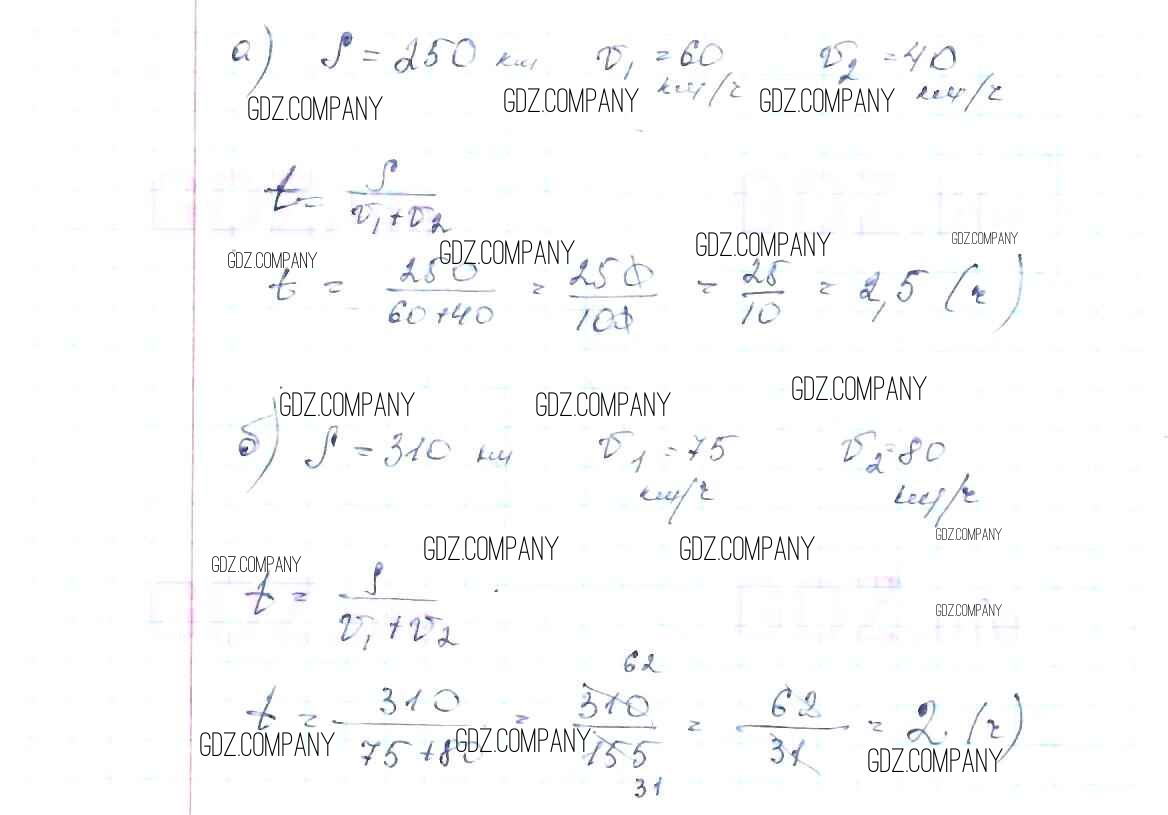 а) S = 250 км v₁ = 60 км/ч v₂ = 40 км/ч
GDZ.COMPANY GDZ.COMPANY GDZ.COMPANY
t = S / (v₁ + v₂)
GDZ.COMPANY GDZ.COMPANY GDZ.COMPANY GDZ.COMPANY
t = 250 / (60+40) = 250 / 100 = 25 / 10 = 2,5 (ч)
GDZ.COMPANY GDZ.COMPANY GDZ.COMPANY
б) S = 310 км v₁ = 75 км/ч v₂ = 80 км/ч
GDZ.COMPANY GDZ.COMPANY GDZ.COMPANY GDZ.COMPANY
t = S / (v₁ + v₂)
GDZ.COMPANY
62
t = 310 / (75+80) = 310 / 155 = 62 / 31 = 2 (ч)
GDZ.COMPANY GDZ.COMPANY GDZ.COMPANY
31